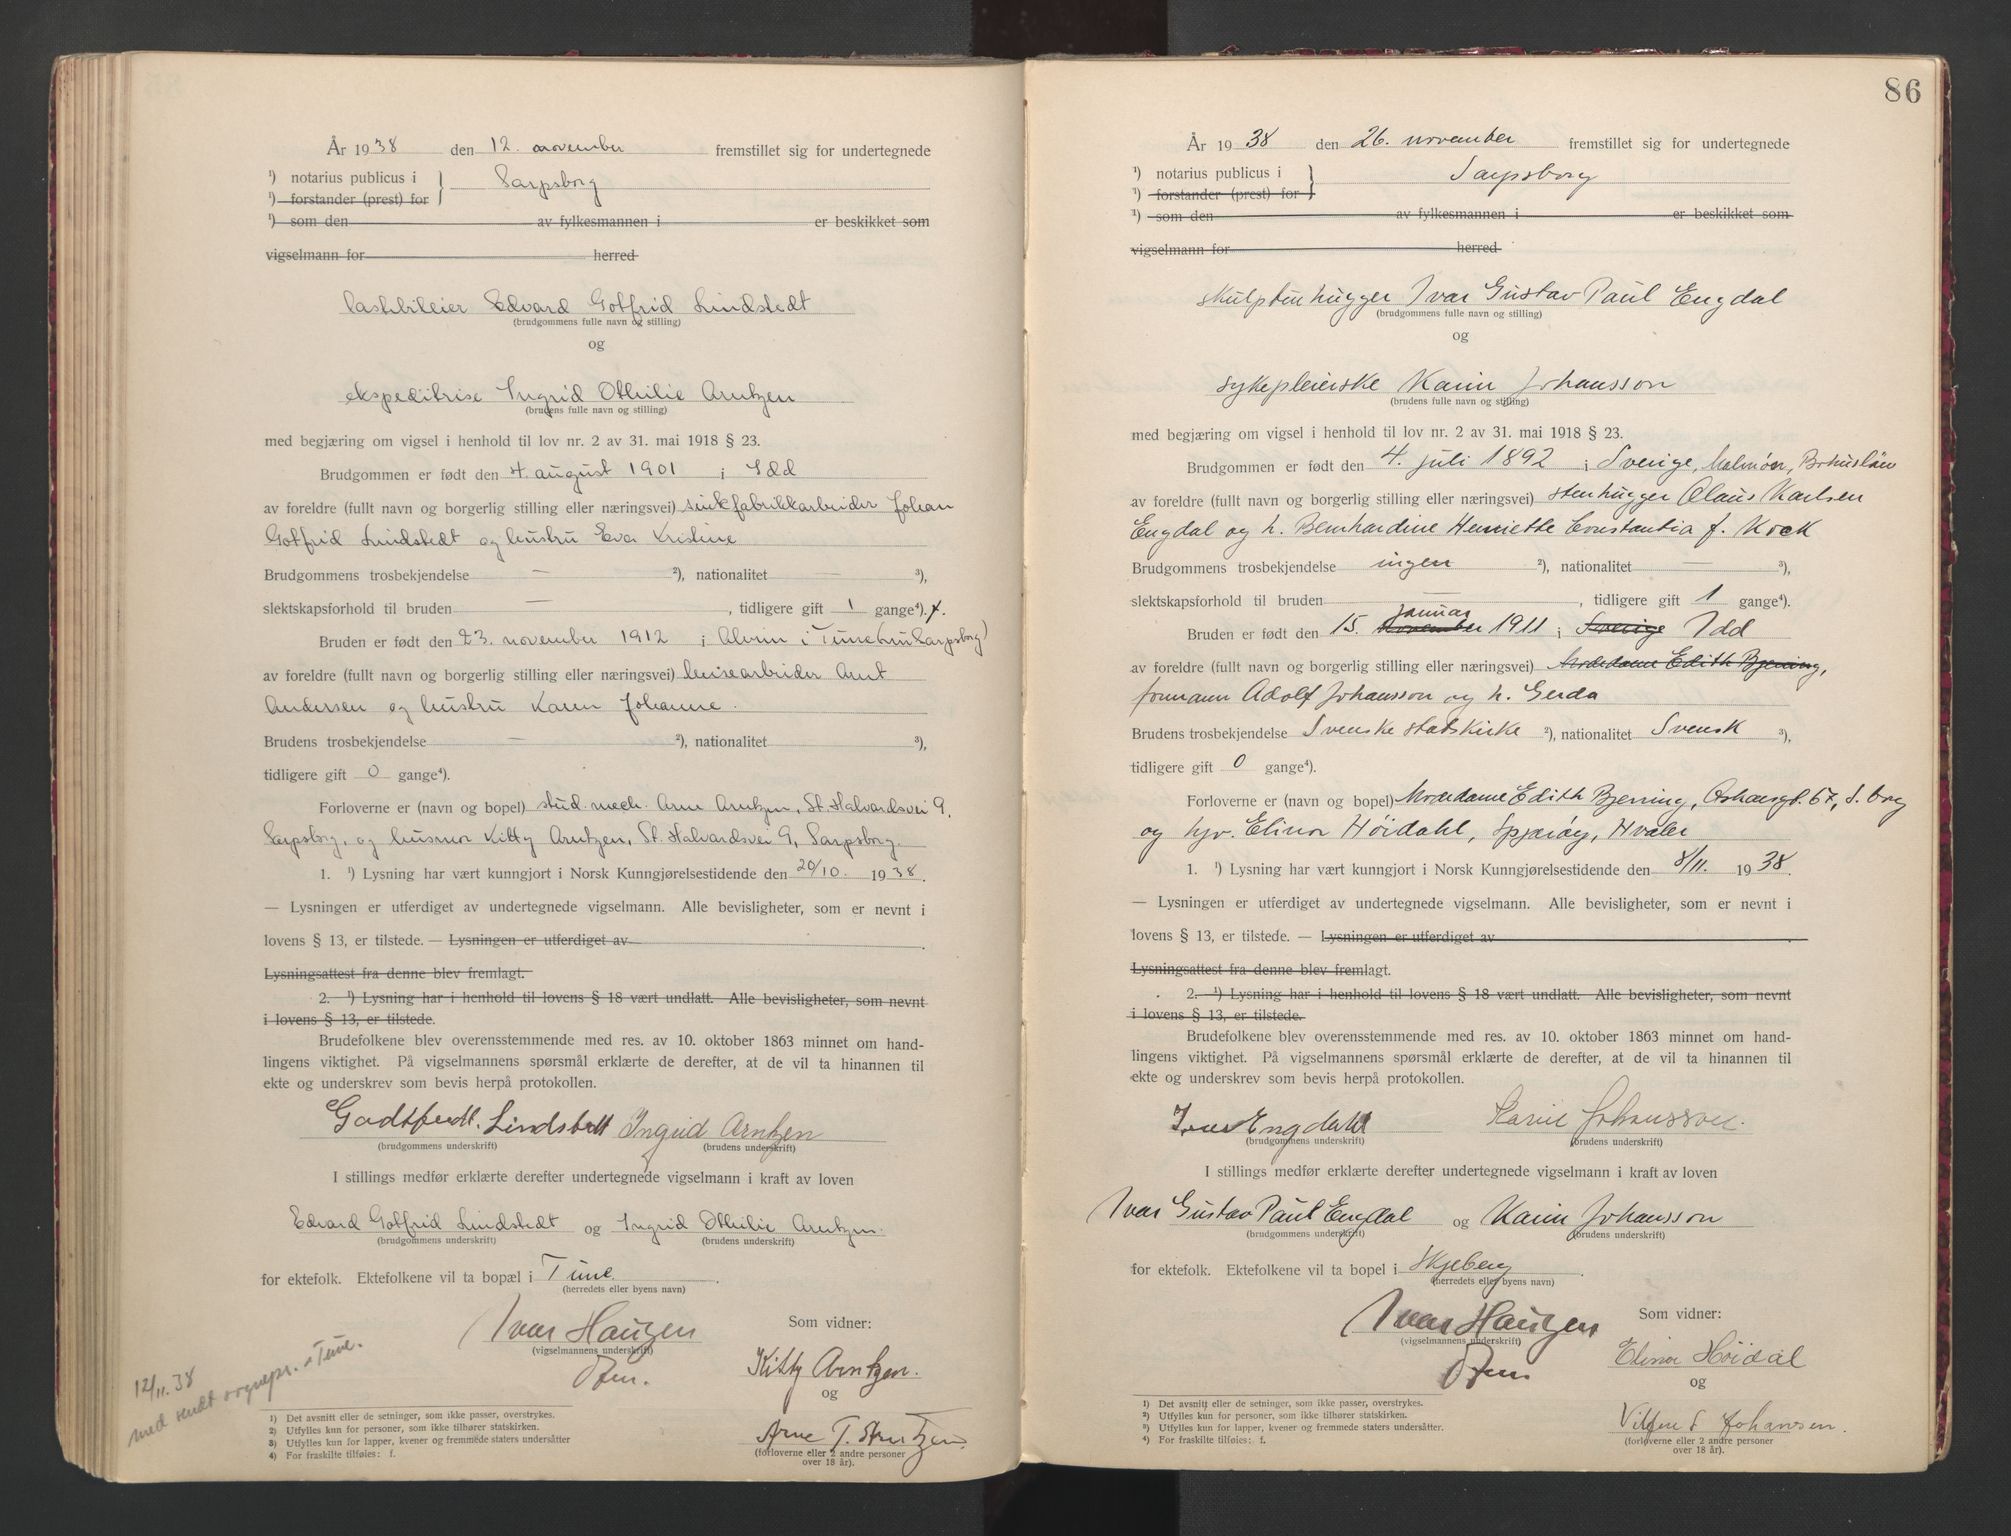 År 1938 den 12. november fremstillet sig for undertegnede
¹) notarius publicus i } Sarpsborg
¹) forstander (prest) for
¹) som den av fylkesmannen i er beskikket som
vigselmann for herred
lastebileier Edvard Gotfrid Lindstedt
(brudgommens fulle navn og stilling)
og
ekspeditrise Ingrid Othilie Arntzen
(brudens fulle navn og stilling)
med begjæring om vigsel i henhold til lov nr. 2 av 31. mai 1918 § 23.
Brudgommen er født den 4. august 1901 i Idd
av foreldre (fullt navn og borgerlig stilling eller næringsvei) sinkfabrikkarbeider Johan
Gotfrid Lindstedt og hustru Eva Kristine
Brudgommens trosbekjendelse — ²), nationalitet — ³),
slektskapsforhold til bruden — , tidligere gift 1 gange⁴). f.
Bruden er født den 23. november 1912 i Alvim i Tune (nu Sarpsborg)
av foreldre (fullt navn og borgerlig stilling eller næringsvei) leisearbeider Arnt
Andersen og hustru Karen Johanne.
Brudens trosbekjendelse — ²), nationalitet ³),
tidligere gift 0 gange⁴).
Forloverne er (navn og bopel) stud. mech. Arne Arntzen, St. Halvardsvei 9,
Sarpsborg, og husmor Kitty Arntzen, St. Halvardsvei 9, Sarpsborg.
1. ¹) Lysning har vært kunngjort i Norsk Kunngjørelsestidende den 20/10. 1938.
— Lysningen er utferdiget av undertegnede vigselmann. Alle bevisligheter, som er nevnt i
lovens § 13, er tilstede. — Lysningen er utferdiget av
Lysningsattest fra denne blev fremlagt.
2. ¹) Lysning har i henhold til lovens § 18 vært undlatt. Alle bevisligheter, som nevnt
i lovens § 13, er tilstede.
Brudefolkene blev overensstemmende med res. av 10. oktober 1863 minnet om hand-
lingens viktighet. På vigselmannens spørsmål erklærte de derefter, at de vil ta hinannen til
ekte og underskrev som bevis herpå protokollen.
Godtfredt. Lindstedt Ingrid Arntzen
(brudgommens underskrift) (brudens underskrift)
I stillings medfør erklærte derefter undertegnede vigselmann i kraft av loven
Edvard Gotfrid Lindstedt og Ingrid Othilie Arntzen.
(brudgommens underskrift) (brudens underskrift)
for ektefolk. Ektefolkene vil ta bopæl i Tune.
(herredets eller byens navn)
Ivar Hauzen Som vidner:
(vigselmannens underskrift)
Kitty Arntzen.
og
Arne T. Arntzen.
(forloverne eller 2 andre personer
over 18 år).
12/11.38
med sendt sognepr. i Tune.
1) Det avsnitt eller de setninger, som ikke passer, overstrykes.
2) Utfylles kun for personer, som ikke tilhører statskirken.
3) Utfylles kun for lapper, kvener og fremmede staters undersåtter
4) For fraskilte tilføies: f.
86
År 1938 den 26. november fremstillet sig for undertegnede
¹) notarius publicus i } Sarpsborg
¹) forstander (prest) for
¹) som den av fylkesmannen i er beskikket som
vigselmann for herred
skulpturhugger Ivar Gustav Paul Engdal
(brudgommens fulle navn og stilling)
og
sykepleierske Karin Johansson
(brudens fulle navn og stilling)
med begjæring om vigsel i henhold til lov nr. 2 av 31. mai 1918 § 23.
Brudgommen er født den 4. juli 1892 i Sverige, Malmön, Bohuslän
av foreldre (fullt navn og borgerlig stilling eller næringsvei) stenhugger Olaus Karlsen
Engdal og h. Bernhardine Henriette Constantia f. Kock
Brudgommens trosbekjendelse ingen ²), nationalitet — ³),
slektskapsforhold til bruden — , tidligere gift 1 gange⁴).
januar
Bruden er født den 15. november 1911 i Sverige Idd
av foreldre (fullt navn og borgerlig stilling eller næringsvei) Motedame Edith Bjerring,
formann Adolf Johansson og h. Gerda
Brudens trosbekjendelse Svenske statskirke ²), nationalitet Svensk ³),
tidligere gift 0 gange⁴).
Forloverne er (navn og bopel) Motedame Edith Bjerring, Oskarsgt. 67, S.borg
og hjv. Elinor Höidahl, Spjærøy, Hvaler
1. ¹) Lysning har vært kunngjort i Norsk Kunngjørelsestidende den 8/11. 1938.
— Lysningen er utferdiget av undertegnede vigselmann. Alle bevisligheter, som er nevnt i
lovens § 13, er tilstede. — Lysningen er utferdiget av
Lysningsattest fra denne blev fremlagt.
2. ¹) Lysning har i henhold til lovens § 18 vært undlatt. Alle bevisligheter, som nevnt
i lovens § 13, er tilstede.
Brudefolkene blev overensstemmende med res. av 10. oktober 1863 minnet om hand-
lingens viktighet. På vigselmannens spørsmål erklærte de derefter, at de vil ta hinannen til
ekte og underskrev som bevis herpå protokollen.
Ivar Engdahl Karin Johansson.
(brudgommens underskrift) (brudens underskrift)
I stillings medfør erklærte derefter undertegnede vigselmann i kraft av loven
Ivar Gustav Paul Engdal og Karin Johansson
(brudgommens underskrift) (brudens underskrift)
for ektefolk. Ektefolkene vil ta bopel i Skjeberg
(herredets eller byens navn)
Ivar Hauzen Som vidner:
(vigselmannens underskrift)
Elinor Höidal
og
Johansen.
(forloverne eller 2 andre personer
over 18 år).
1) Det avsnitt eller de setninger, som ikke passer, overstrykes.
2) Utfylles kun for personer, som ikke tilhører statskirken.
3) Utfylles kun for lapper, kvener og fremmede staters undersåtter.
4) For fraskilte tilføies: f.